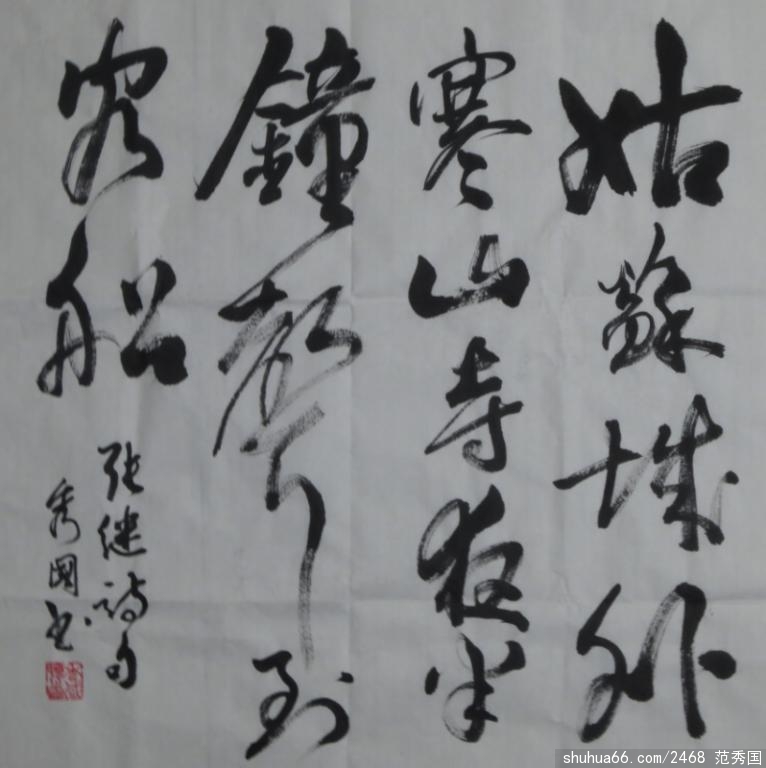 姑蘇城外
寒山寺夜半
鐘聲到
客船
张继詩句
秀國书
shuhua66.com/2468 范秀国